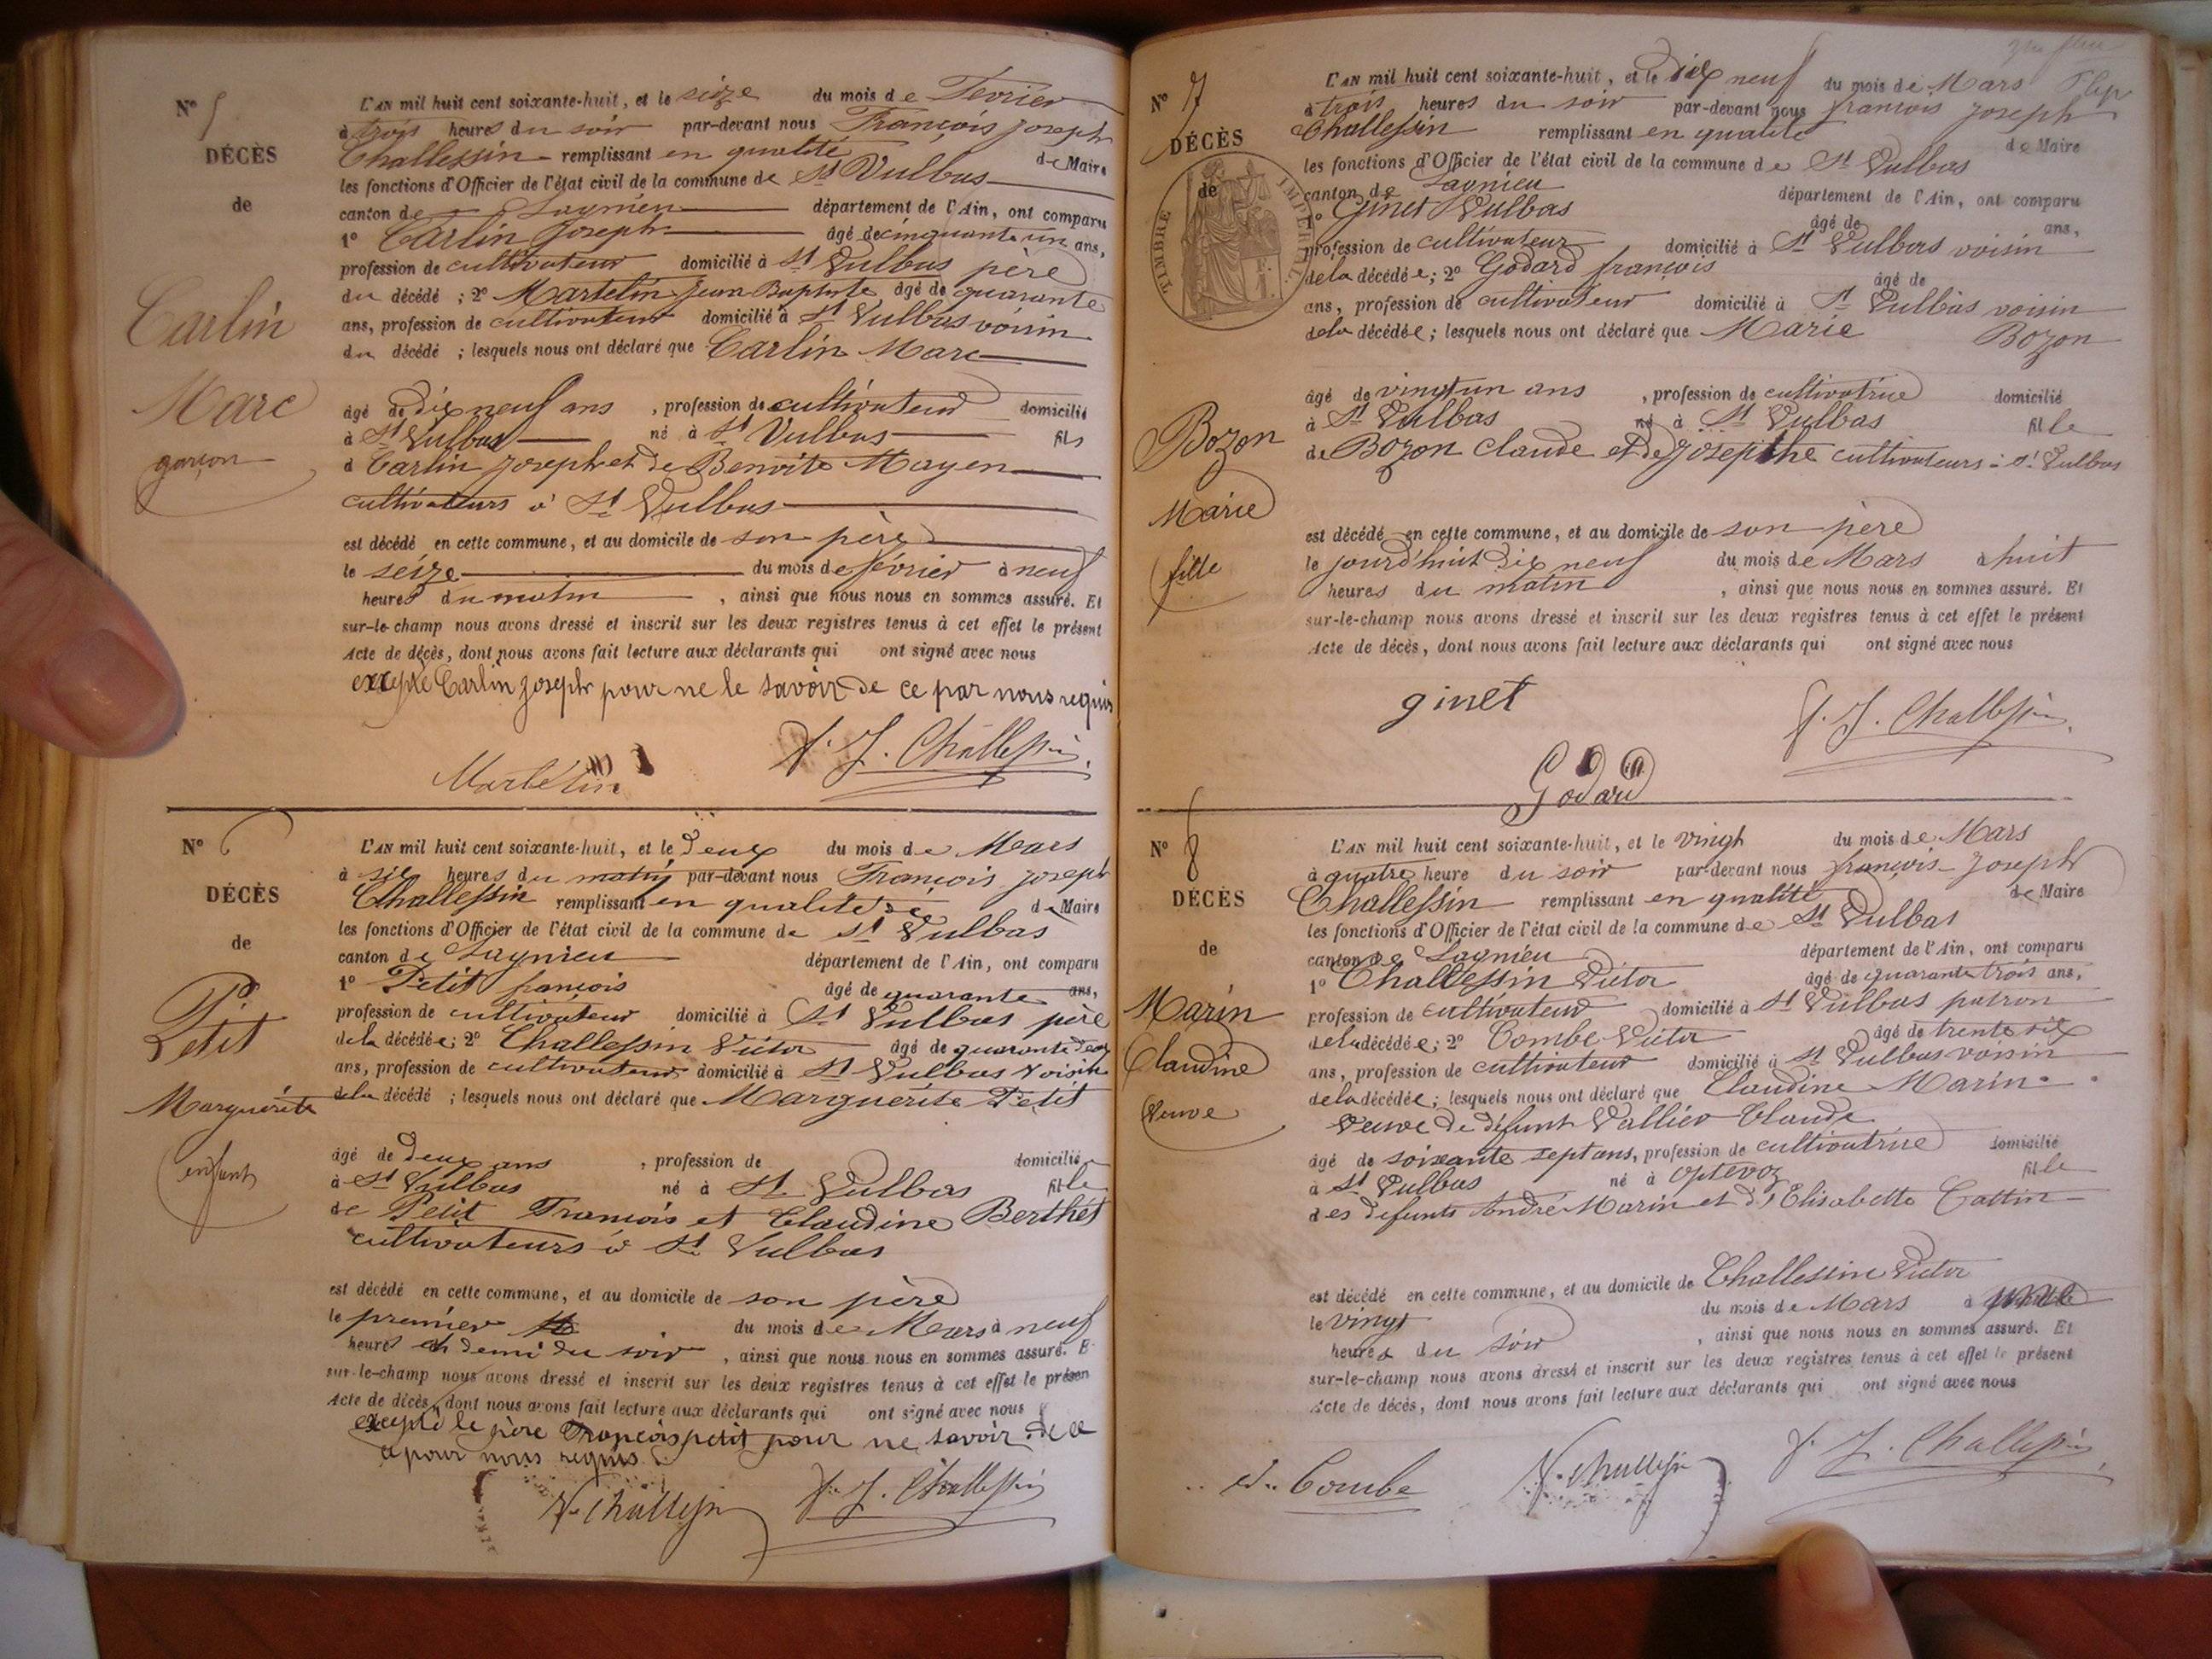 N° 5
DÉCÈS
de
Carlin
Marc
garçon
L'AN mil huit cent soixante-huit, et le seize du mois de Février
à trois heures du soir par-devant nous François joseph
Challessin remplissant en qualité de Maire
les fonctions d'Officier de l'état civil de la commune de St Vulbas
canton de Lagnieu département de l'Ain, ont comparu
1° Carlin Joseph âgé de cinquante un ans,
profession de cultivateur domicilié à St Vulbas père
du décédé ; 2° Martelin Jean Baptiste âgé de quarante
ans, profession de cultivateur domicilié à St Vulbas voisin
du décédé ; lesquels nous ont déclaré que Carlin Marc
âgé de dix neuf ans , profession de cultivateur domicilié
à St Vulbas né à St Vulbas fils
d Carlin joseph et de Benoite Mayen
cultivateurs à St Vulbas
est décédé en cette commune, et au domicile de son père
le seize du mois de février à neuf
heures du matin , ainsi que nous nous en sommes assuré. Et
sur-le-champ nous avons dressé et inscrit sur les deux registres tenus à cet effet le présent
Acte de décès, dont nous avons fait lecture aux déclarants qui ont signé avec nous
excepté Carlin joseph pour ne le savoir de ce par nous requis
Martelin F. J. Challessin
N° 6
DÉCÈS
de
Petit
Marguérite
enfant
L'AN mil huit cent soixante-huit, et le deux du mois de Mars
à six heures du matin par-devant nous François joseph
Challessin remplissant en qualité de de Maire
les fonctions d'Officier de l'état civil de la commune de St Vulbas
canton de Lagnieu département de l'Ain, ont comparu
1° Petit françois âgé de quarante ans,
profession de cultivateur domicilié à St Vulbas père
de la décédée; 2° Challessin Victor âgé de quarante deux
ans, profession de cultivateur domicilié à St Vulbas voisin
de la décédé ; lesquels nous ont déclaré que Marguerite Petit
âgé de deux ans , profession de domicilié
à St Vulbas né à St Vulbas fille
de Petit François et Claudine Berthet
cultivateurs à St Vulbas
est décédé en cette commune, et au domicile de son père
le premier du mois de Mars à neuf
heures et demi du soir , ainsi que nous nous en sommes assuré. E
sur-le-champ nous avons dressé et inscrit sur les deux registres tenus à cet effet le présen
Acte de décès, dont nous avons fait lecture aux déclarants qui ont signé avec nous
excepté le père François petit pour ne savoir de ce
a pour nous requis
V. Challessin F. J. Challessin
N° 7
DÉCÈS
de
TIMBRE IMPÉRIAL
Bozon
Marie
fille
L'AN mil huit cent soixante-huit, et le dix neuf du mois de Mars
à trois heures du soir par-devant nous françois joseph
Challessin remplissant en qualité de Maire
les fonctions d'Officier de l'état civil de la commune de St Vulbas
canton de Lagnieu département de l'Ain, ont comparu
1° Ginet Vulbas âgé de ans,
profession de cultivateur domicilié à St Vulbas voisin
de la décédée; 2° Godard françois âgé de
ans, profession de cultivateur domicilié à St Vulbas voisin
de la décédée; lesquels nous ont déclaré que Marie Bozon
âgé de vingt un ans , profession de cultivatrice domicilié
à St Vulbas né à St Vulbas fille
de Bozon Claude et de Josepthe cultivateurs à St Vulbas
est décédé en cette commune, et au domicile de son père
le jourd'huit dix neuf du mois de Mars à huit
heures du matin , ainsi que nous nous en sommes assuré. Et
sur-le-champ nous avons dressé et inscrit sur les deux registres tenus à cet effet le présent
Acte de décès, dont nous avons fait lecture aux déclarants qui ont signé avec nous
ginet F. J. Challessin
Godard
N° 8
DÉCÈS
de
Marin
Claudine
Veuve
L'AN mil huit cent soixante-huit, et le vingt du mois de Mars
à quatre heure du soir par-devant nous françois joseph
Challessin remplissant en qualité de Maire
les fonctions d'Officier de l'état civil de la commune de St Vulbas
canton de Lagnieu département de l'Ain, ont comparu
1° Challessin Victor âgé de quarante trois ans,
profession de cultivateur domicilié à St Vulbas patron
de la décédée; 2° Combe Victor âgé de trente six
ans, profession de cultivateur domicilié à St Vulbas voisin
de la décédée; lesquels nous ont déclaré que Claudine Marin
Veuve de défunt Vallier Claude
âgé de soixante sept ans, profession de cultivatrice domicilié
à St Vulbas né à Optevoz fille
des défunts André Marin et d'Elisabette Cattin
est décédé en cette commune, et au domicile de Challessin Victor
le vingt du mois de Mars à
heures du soir , ainsi que nous nous en sommes assuré. Et
sur-le-champ nous avons dressé et inscrit sur les deux registres tenus à cet effet le présent
Acte de décès, dont nous avons fait lecture aux déclarants qui ont signé avec nous
Combe V. Challessin F. J. Challessin